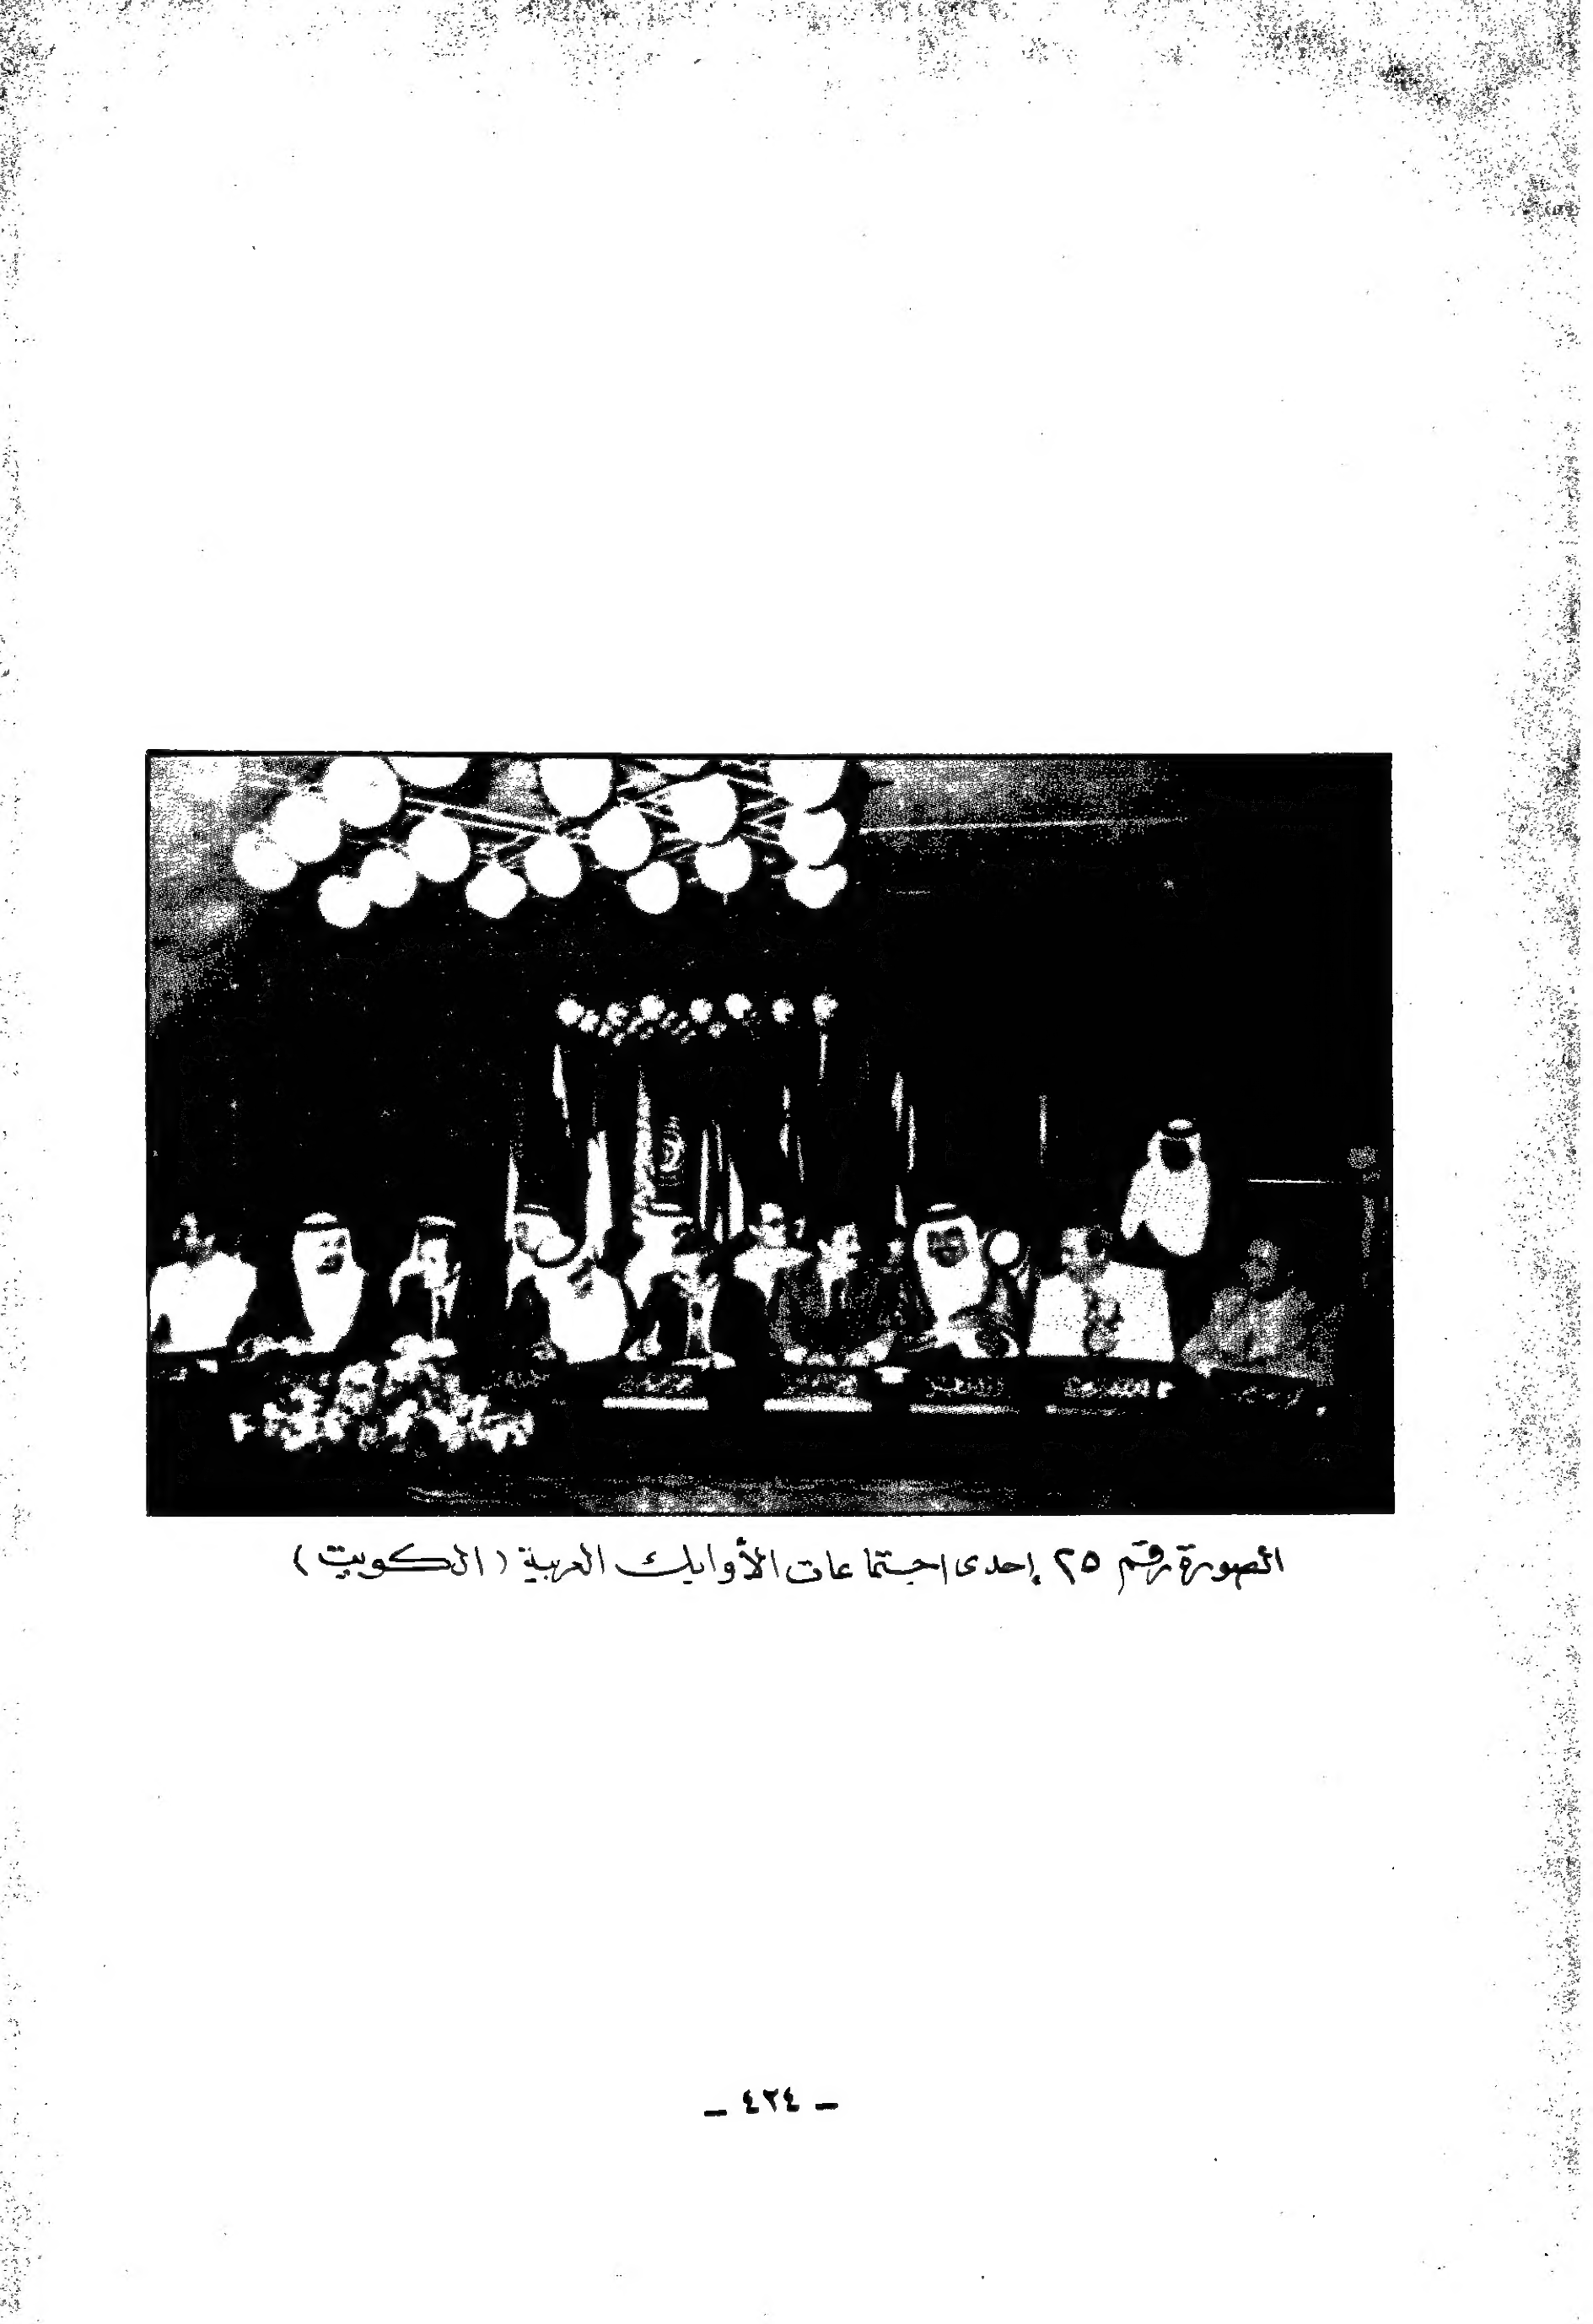 الصورة رقم ٢٥ إحدى اجتماعات الأوابك العربية (الكويت)
ـ ٤٢٤ ـ